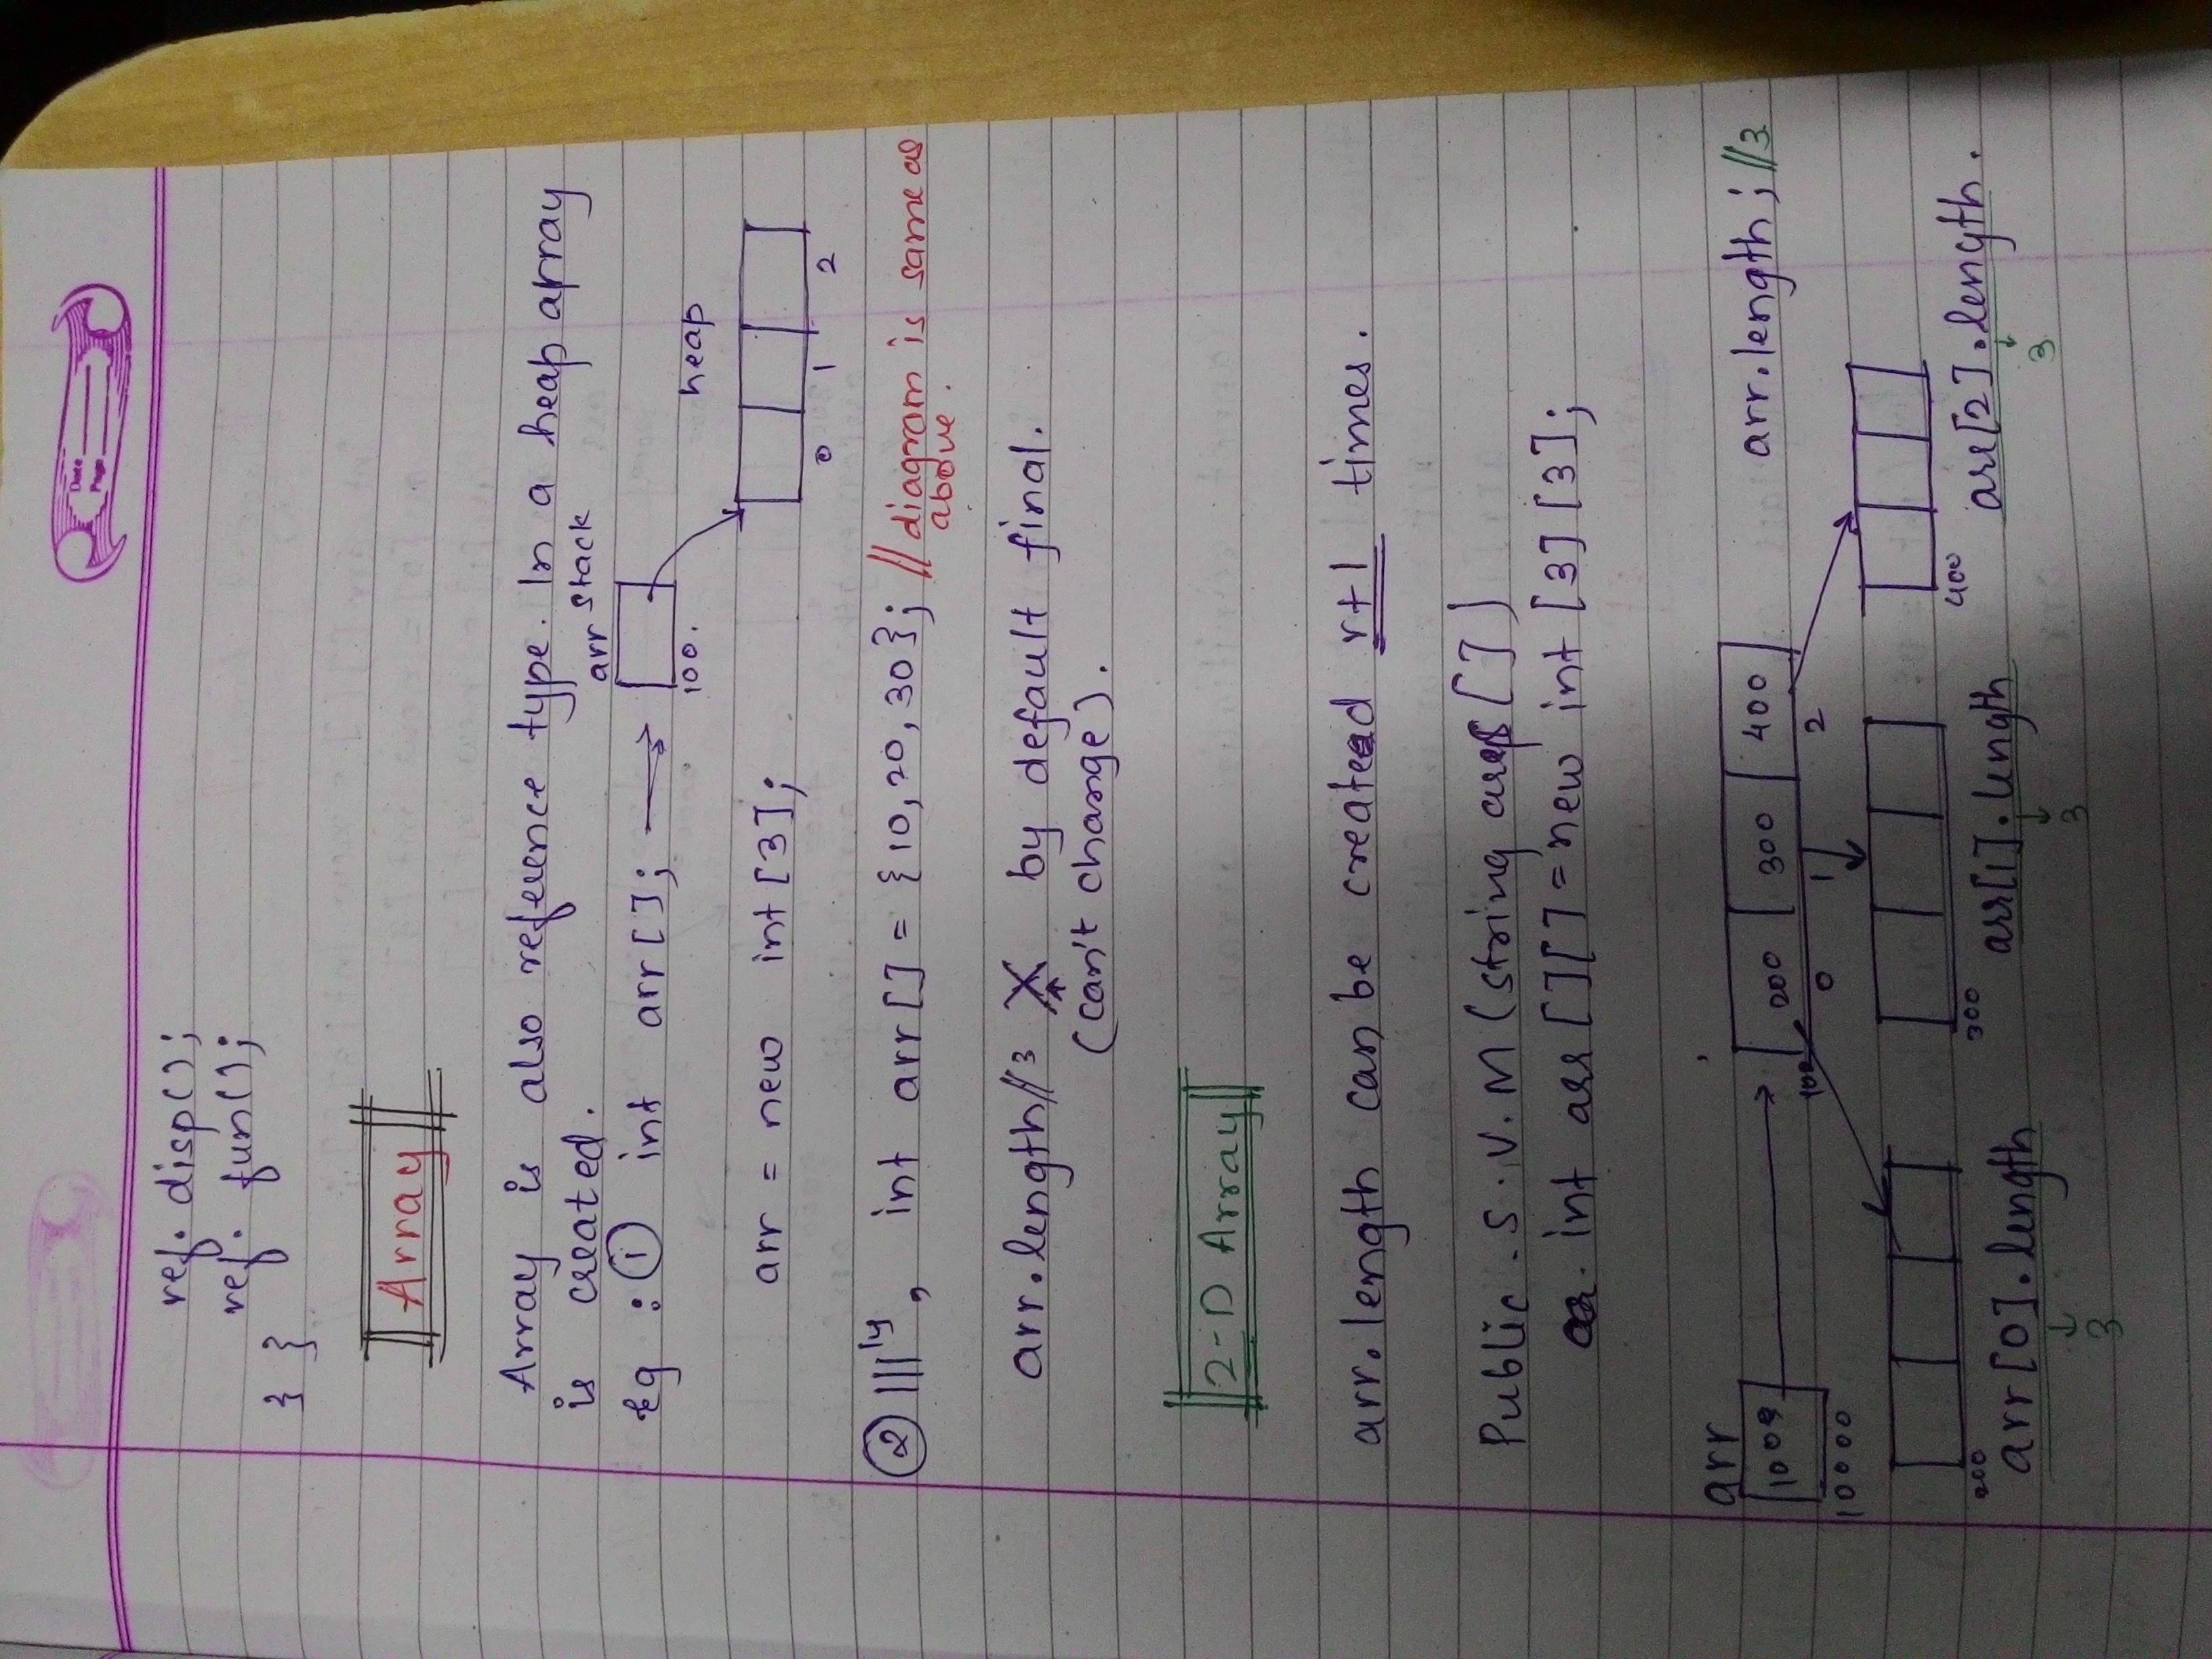 Date
Page
ref. disp();
ref. fun();
} }
Array
Array is also reference type. In a heap array
is created.
arr stack
Eg : ① int arr[]; →
100.
heap
arr = new int [3];
0 1 2
② |||ly, int arr[] = {10, 20, 30}; // diagram is same as
above.
arr.length//3 X by default final.
(can't change).
2-D Array
arr.length can be created r+1 times.
Public . S . V. M (string args [])
int arr [][] = new int [3] [3];
arr
200 300 400
arr.length; //3
100
0 1 2
10000
200
300
400
arr[0].length
arr[1].length
arr[2].length.
3
3
3